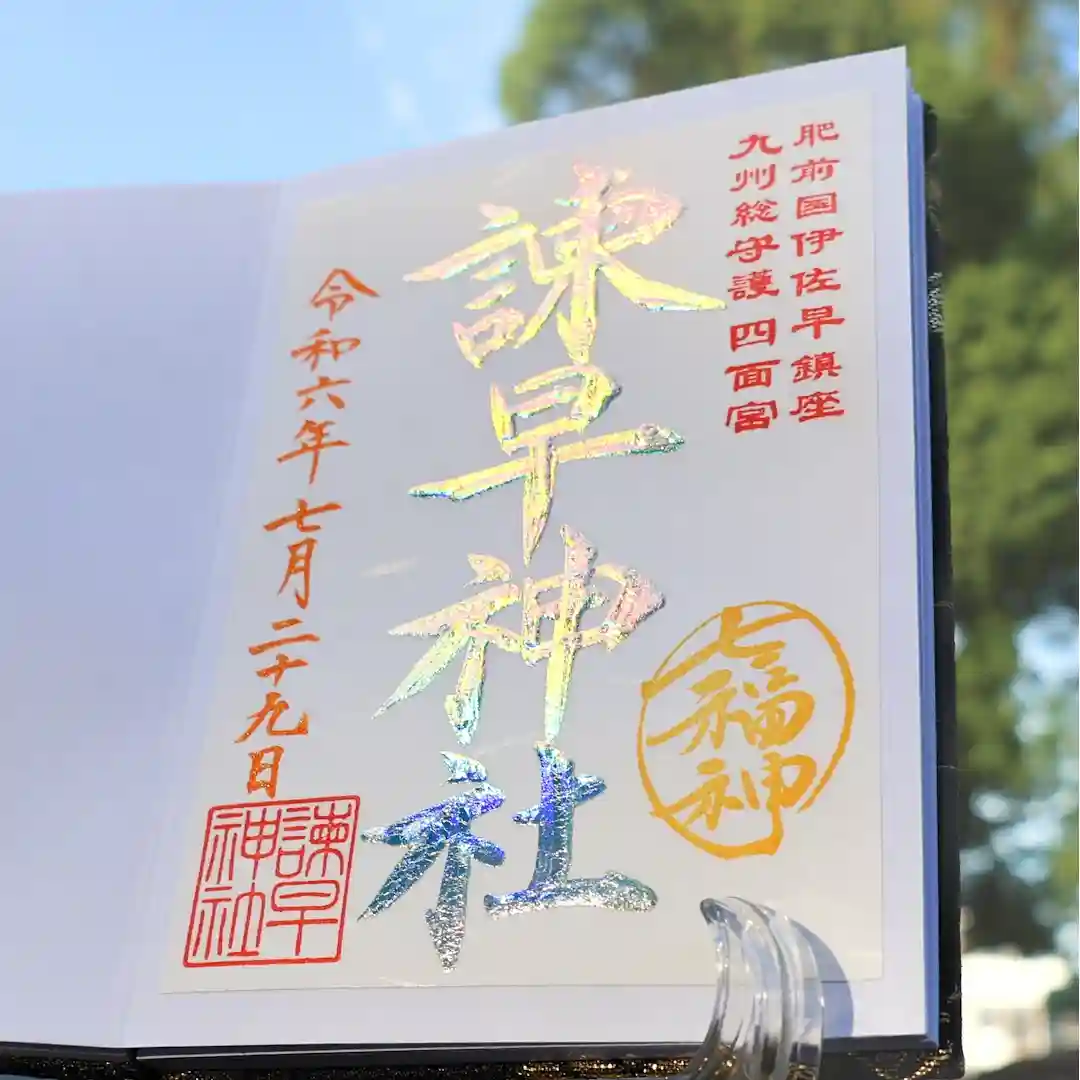 肥前国伊佐早鎮座
九州総守護 四面宮
諫早神社
七福神
令和六年 七月 二十九日
諫早
神社